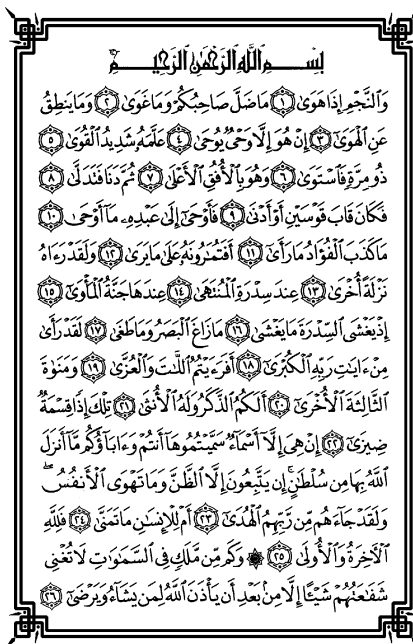 بِسْمِ اللَّهِ الرَّحْمَٰنِ الرَّحِيمِ
وَالنَّجْمِ إِذَا هَوَىٰ ﴿١﴾ مَا ضَلَّ صَاحِبُكُمْ وَمَا غَوَىٰ ﴿٢﴾ وَمَا يَنطِقُ
عَنِ الْهَوَىٰ ﴿٣﴾ إِنْ هُوَ إِلَّا وَحْيٌ يُوحَىٰ ﴿٤﴾ عَلَّمَهُ شَدِيدُ الْقُوَىٰ ﴿٥﴾
ذُو مِرَّةٍ فَاسْتَوَىٰ ﴿٦﴾ وَهُوَ بِالْأُفُقِ الْأَعْلَىٰ ﴿٧﴾ ثُمَّ دَنَا فَتَدَلَّىٰ ﴿٨﴾
فَكَانَ قَابَ قَوْسَيْنِ أَوْ أَدْنَىٰ ﴿٩﴾ فَأَوْحَىٰ إِلَىٰ عَبْدِهِ مَا أَوْحَىٰ ﴿١٠﴾
مَا كَذَبَ الْفُؤَادُ مَا رَأَىٰ ﴿١١﴾ أَفَتُمَارُونَهُ عَلَىٰ مَا يَرَىٰ ﴿١٢﴾ وَلَقَدْ رَءَاهُ
نَزْلَةً أُخْرَىٰ ﴿١٣﴾ عِندَ سِدْرَةِ الْمُنتَهَىٰ ﴿١٤﴾ عِندَهَا جَنَّةُ الْمَأْوَىٰ ﴿١٥﴾
إِذْ يَغْشَى السِّدْرَةَ مَا يَغْشَىٰ ﴿١٦﴾ مَا زَاغَ الْبَصَرُ وَمَا طَغَىٰ ﴿١٧﴾ لَقَدْ رَأَىٰ
مِنْ ءَايَٰتِ رَبِّهِ الْكُبْرَىٰ ﴿١٨﴾ أَفَرَءَيْتُمُ اللَّٰتَ وَالْعُزَّىٰ ﴿١٩﴾ وَمَنَوٰةَ
الثَّالِثَةَ الْأُخْرَىٰ ﴿٢٠﴾ أَلَكُمُ الذَّكَرُ وَلَهُ الْأُنثَىٰ ﴿٢١﴾ تِلْكَ إِذًا قِسْمَةٌ
ضِيزَىٰ ﴿٢٢﴾ إِنْ هِيَ إِلَّا أَسْمَاءٌ سَمَّيْتُمُوهَا أَنتُمْ وَءَابَاؤُكُم مَّا أَنزَلَ
اللَّهُ بِهَا مِن سُلْطَٰنٍ ۚ إِن يَتَّبِعُونَ إِلَّا الظَّنَّ وَمَا تَهْوَى الْأَنفُسُ ۖ
وَلَقَدْ جَاءَهُم مِّن رَّبِّهِمُ الْهُدَىٰ ﴿٢٣﴾ أَمْ لِلْإِنسَٰنِ مَا تَمَنَّىٰ ﴿٢٤﴾ فَلِلَّهِ
الْآخِرَةُ وَالْأُولَىٰ ﴿٢٥﴾ ۞ وَكَم مِّن مَّلَكٍ فِي السَّمَٰوَٰتِ لَا تُغْنِي
شَفَٰعَتُهُمْ شَيْئًا إِلَّا مِن بَعْدِ أَن يَأْذَنَ اللَّهُ لِمَن يَشَاءُ وَيَرْضَىٰ ﴿٢٦﴾